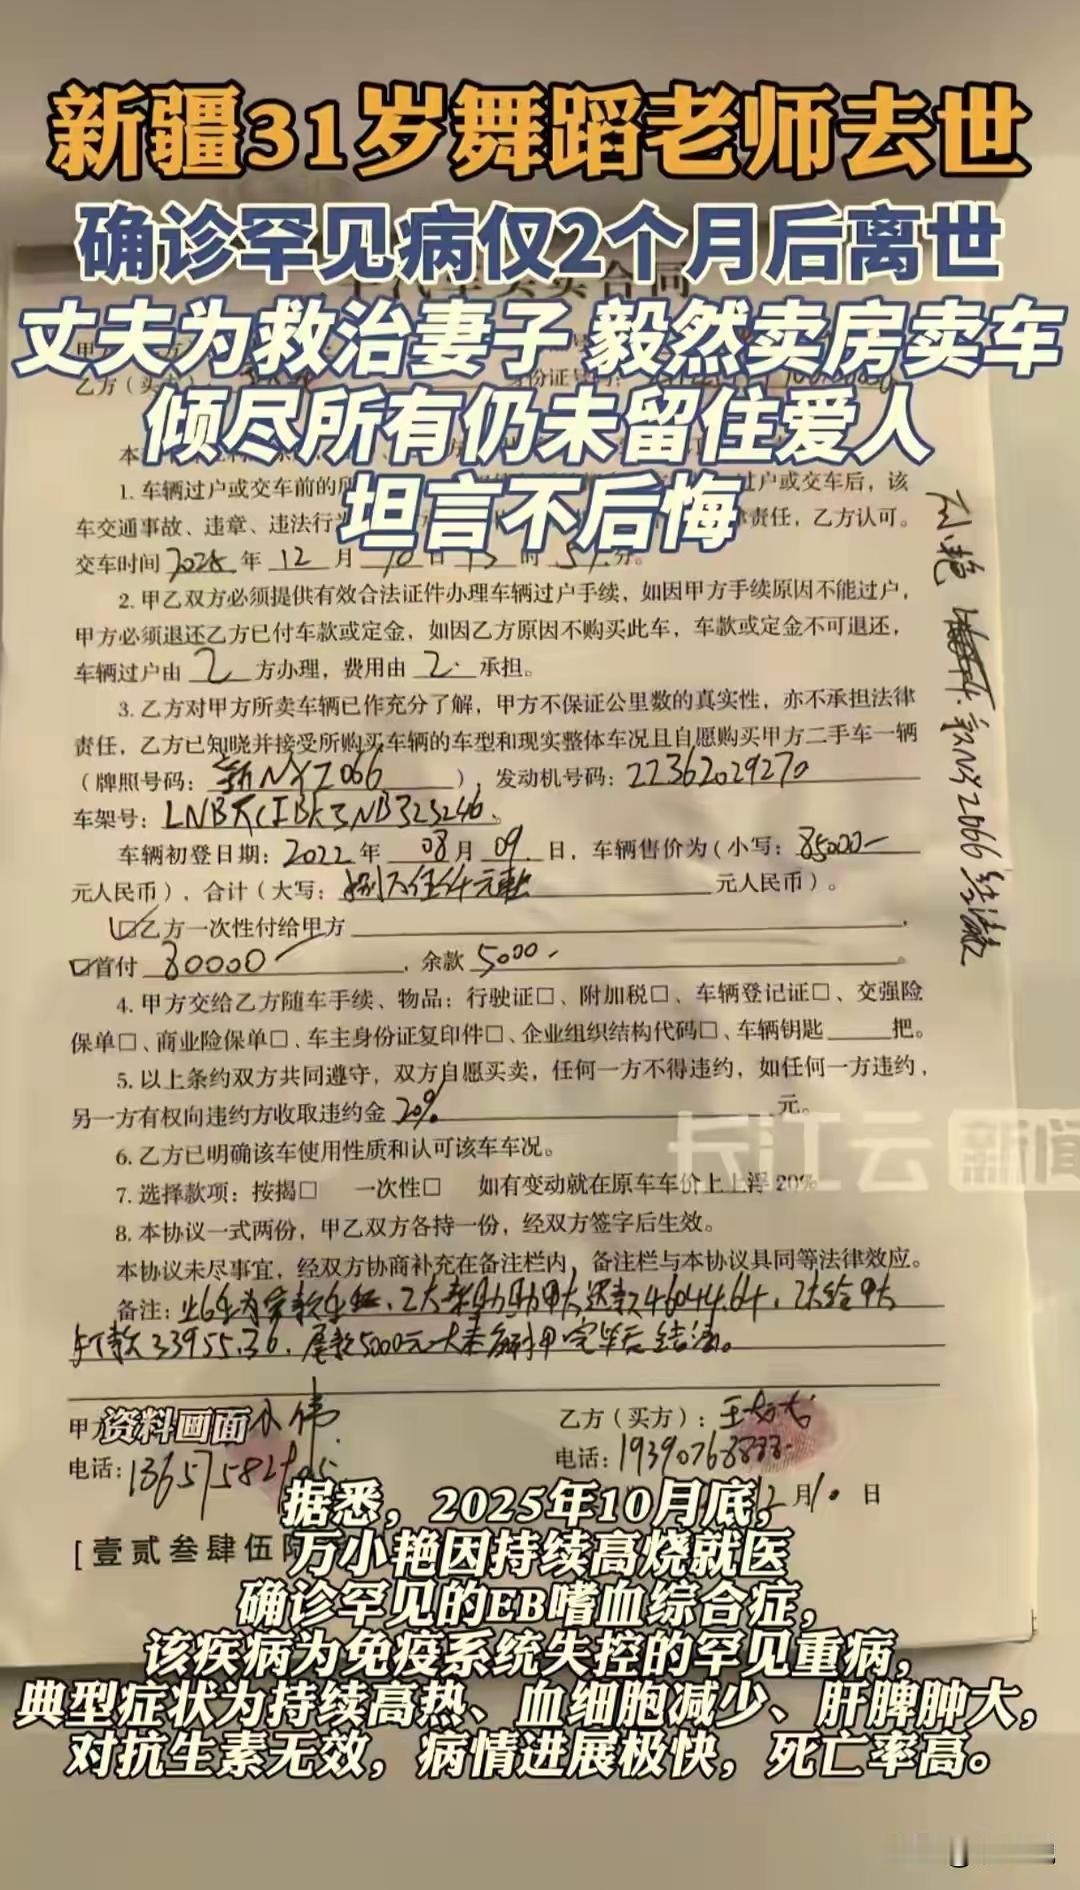 新疆31岁舞蹈老师去世
确诊罕见病仅2个月后离世
丈夫为救治妻子 毅然卖房卖车
倾尽所有仍未留住爱人
坦言不后悔
乙方（买
身份证号码：
1. 车辆过户或交车前的所
过户或交车后，该
车交通事故、违章、违法行
责任，乙方认可。
交车时间 2025 年 12 月 10 日 13 时 51 分。
2. 甲乙双方必须提供有效合法证件办理车辆过户手续，如因甲方手续原因不能过户，
甲方必须退还乙方已付车款或定金，如因乙方原因不购买此车，车款或定金不可退还，
车辆过户由 乙 方办理，费用由 乙 承担。
3. 乙方对甲方所卖车辆已作充分了解，甲方不保证公里数的真实性，亦不承担法律
责任，乙方已知晓并接受所购买车辆的车型和现实整体车况且自愿购买甲方二手车一辆
（牌照号码： ），发动机号码：
车架号：
车辆初登日期：2022 年 08 月 09 日，车辆售价为（小写：85000
元人民币），合计（大写： 元人民币）。
乙方一次性付给甲方
首付 80000 ，余款 5000
4. 甲方交给乙方随车手续、物品：行驶证□、附加税□、车辆登记证□、交强险
保单□、商业险保单□、车主身份证复印件□、企业组织结构代码□、车辆钥匙 把。
5. 以上条约双方共同遵守，双方自愿买卖，任何一方不得违约，如任何一方违约，
另一方有权向违约方收取违约金 20% 元。
6. 乙方已明确该车使用性质和认可该车车况。
7. 选择款项：按揭□ 一次性□ 如有变动就在原车车价上上浮 20%
8. 本协议一式两份，甲乙双方各持一份，经双方签字后生效。
本协议未尽事宜，经双方协商补充在备注栏内，备注栏与本协议具同等法律效应。
备注： 还款46044.64，
33955.36，尾款5000元 结清。
长江云 新闻
甲方
资料画面
乙方（买方）：
电话：
电话：
12 月 10 日
[壹贰叁肆伍
据悉，2025年10月底，
万小艳因持续高烧就医
确诊罕见的EB嗜血综合症，
该疾病为免疫系统失控的罕见重病，
典型症状为持续高热、血细胞减少、肝脾肿大，
对抗生素无效，病情进展极快，死亡率高。